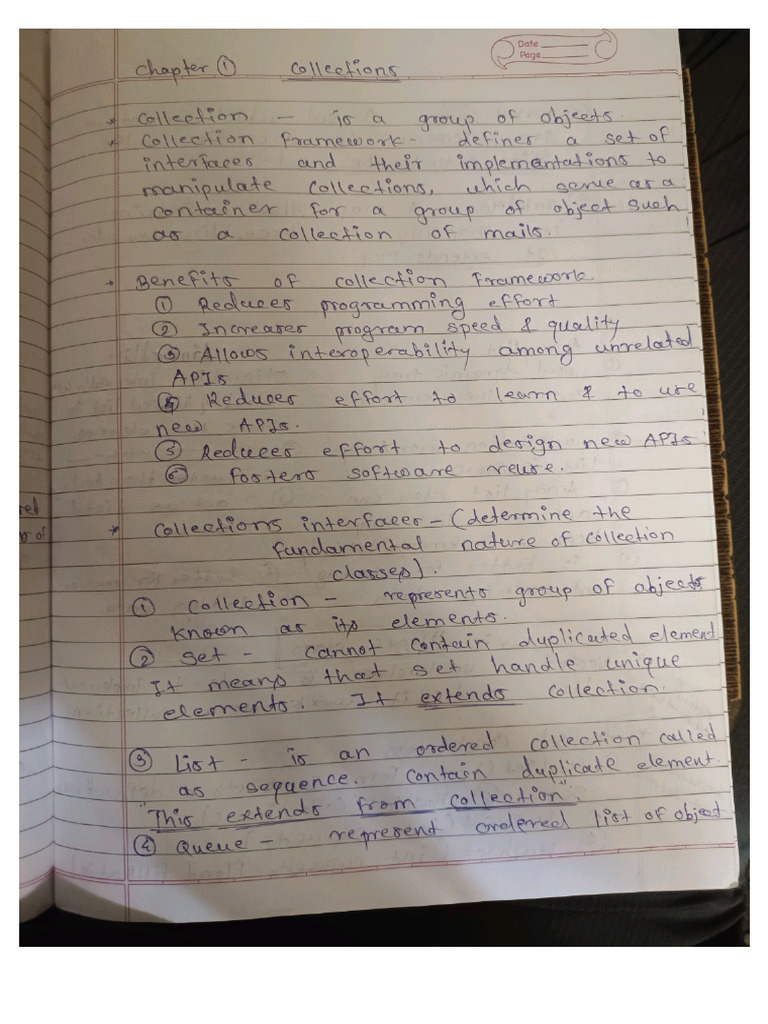 Date
Page
Chapter ① Collections
* Collection - is a group of objects.
* Collection Framework - defines a set of
interfaces and their implementations to
manipulate collections, which serve as a
container for a group of object such
as a collection of mails.
* Benefits of Collection Framework
① Reduces programming effort
② Increases program speed & quality
③ Allows interoperability among unrelated
APIs
④ Reduces effort to learn & to use
new APIs.
⑤ Reduces effort to design new APIs
⑥ fosters software reuse.
* Collections interfaces - (determine the
fundamental nature of collection
classes).
① Collection - represents group of objects
known as its elements.
② Set - cannot contain duplicated element
It means that set handle unique
elements. It extends collection.
③ List - is an ordered collection called
as sequence. contain duplicate element.
"This extends from collection".
④ Queue - represent ordered list of object